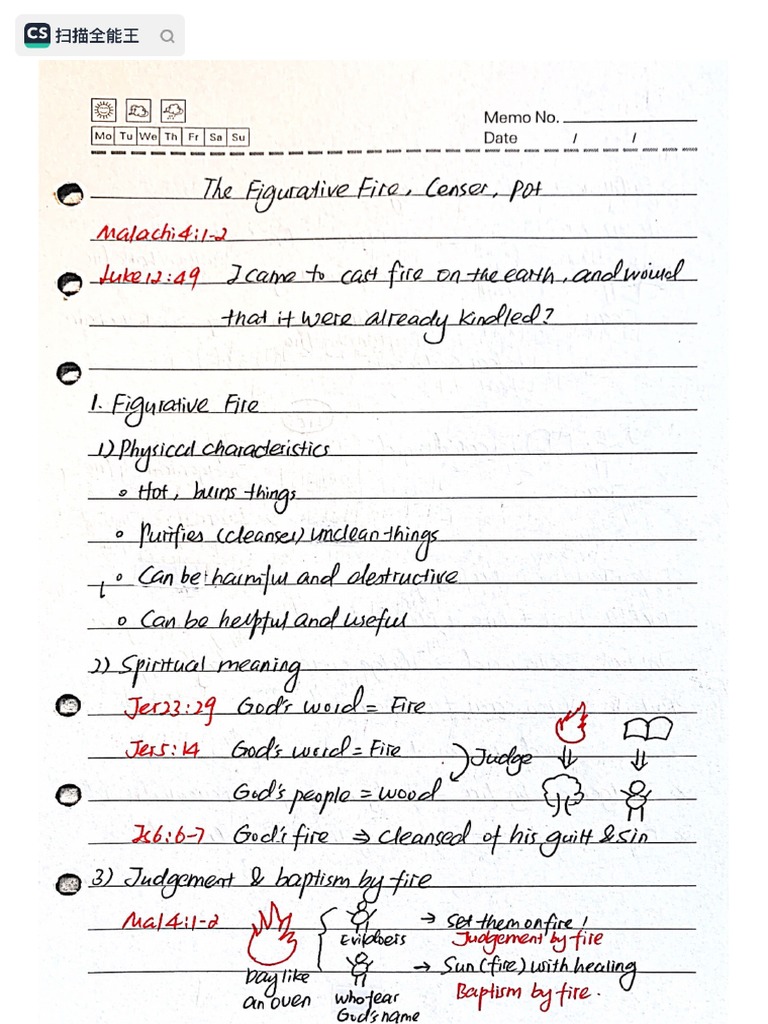 CS 扫描全能王
Memo No.
Mo Tu We Th Fr Sa Su
Date / /
The Figurative Fire, Censer, Pot
Malachi 4:1-2
Luke 12:49 I came to cast fire on the earth, and would
that it were already kindled?
1. Figurative Fire
1) Physical characteristics
Hot, burns things
Purifies (cleanses) unclean things
Can be harmful and destructive
Can be helpful and useful
2) Spiritual meaning
Jer 23:29 God's word = Fire
Jer 5:14 God's word = Fire
Judge
God's people = wood
Is 6:6-7 God's fire ⇒ cleansed of his guilt & sin
3) Judgement & baptism by fire
Mal 4:1-2
Day like
an oven
Evildoers → Set them on fire!
Judgement by fire
who fear
God's name
→ Sun (fire) with healing
Baptism by fire.